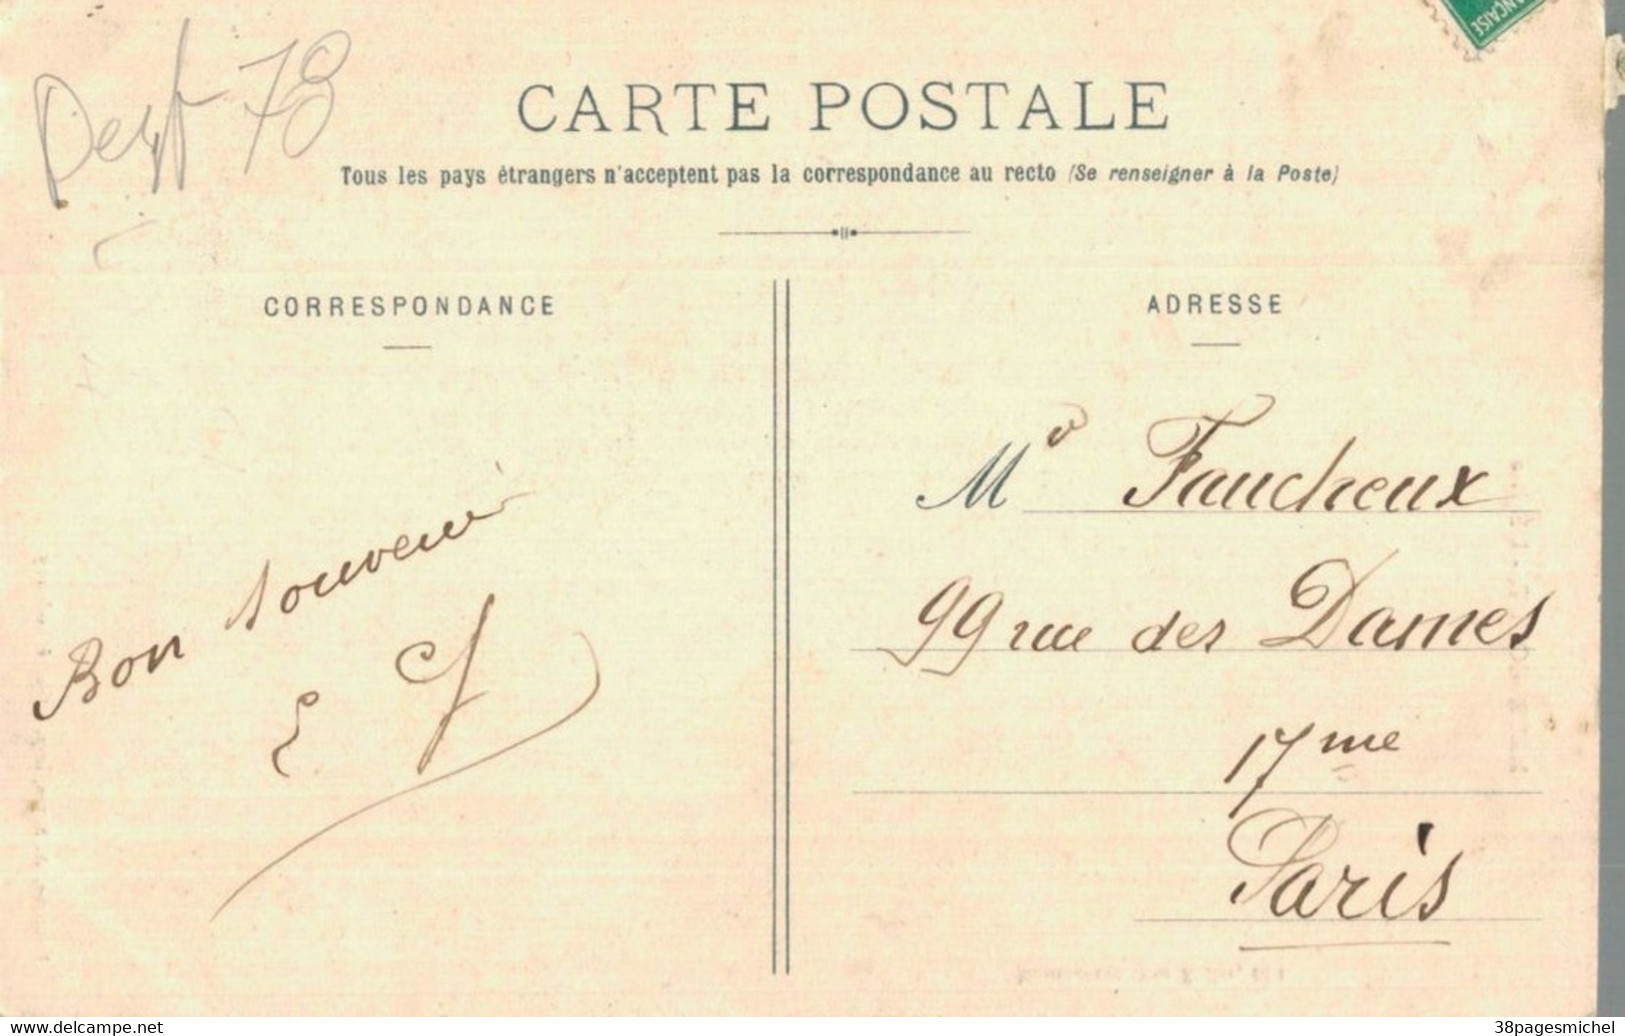 Dept 78
ÇAISE
CARTE POSTALE
Tous les pays étrangers n'acceptent pas la correspondance au recto (Se renseigner à la Poste)
CORRESPONDANCE
Bon souvenir
ADRESSE
Mr Faucheux
99 rue des Dames
17me
Paris
www.delcampe.net
38pagesmichel